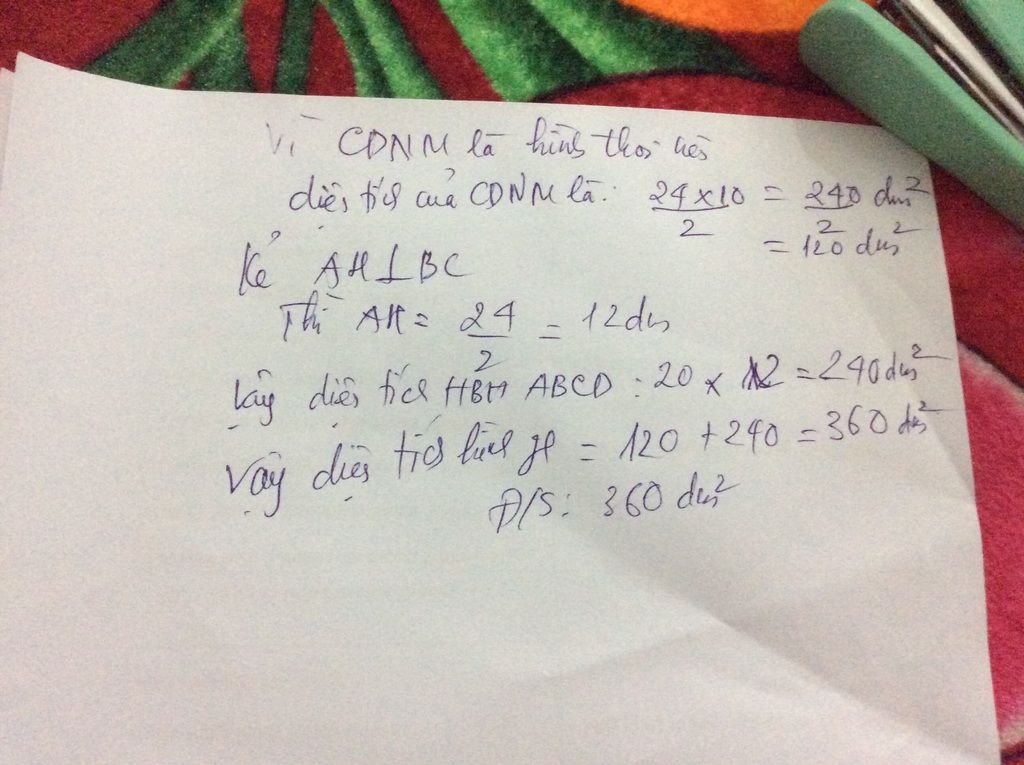 Vì CDNM là hình thoi nên
diện tích của CDNM là: 24 x 10 / 2 = 240 / 2 dm²
= 120 dm²
Kẻ AH ⊥ BC
Thì AH = 24 / 2 = 12 dm
Vậy diện tích HBH ABCD : 20 x 12 = 240 dm²
Vậy diện tích hình H = 120 + 240 = 360 dm²
Đ/S: 360 dm²